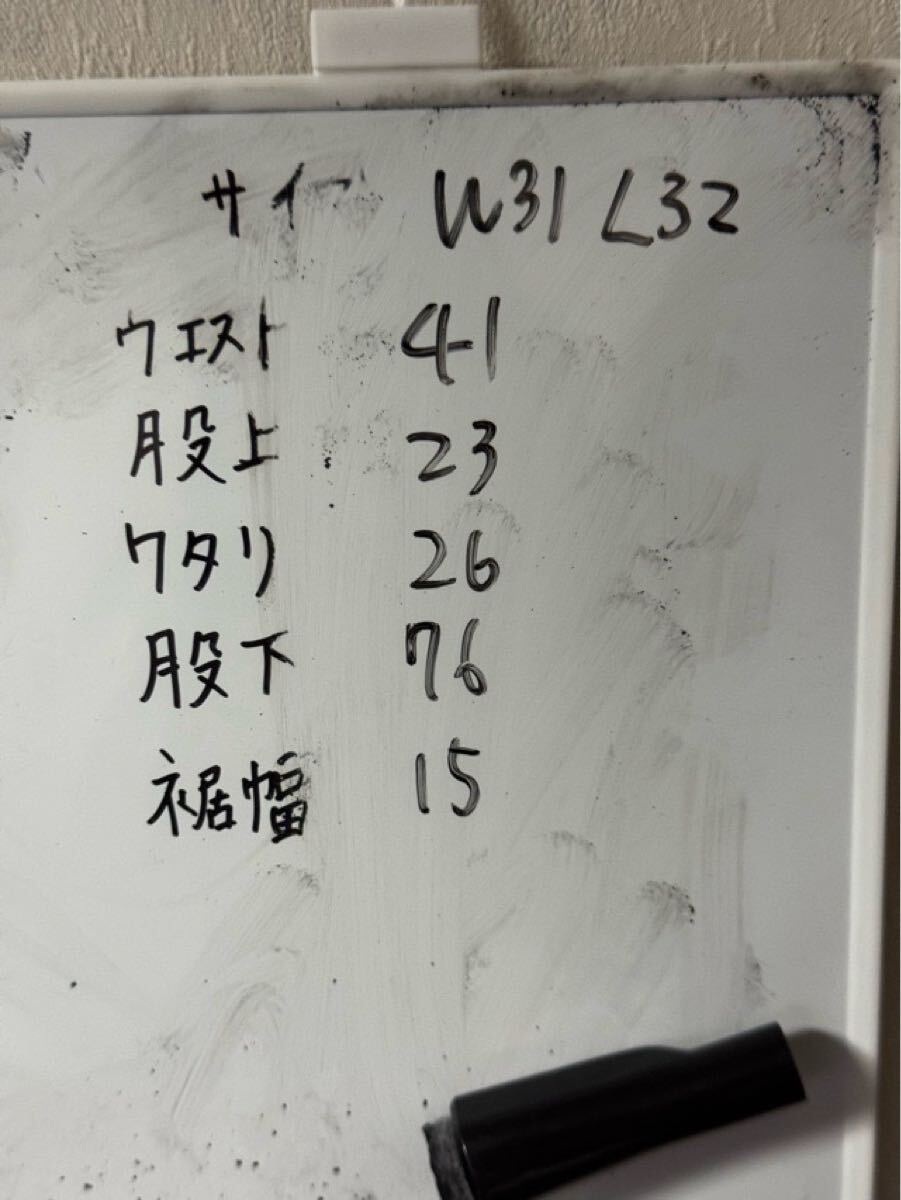 サイ W31 L32
ウエスト 41
股上 23
ワタリ 26
股下 76
裾幅 15